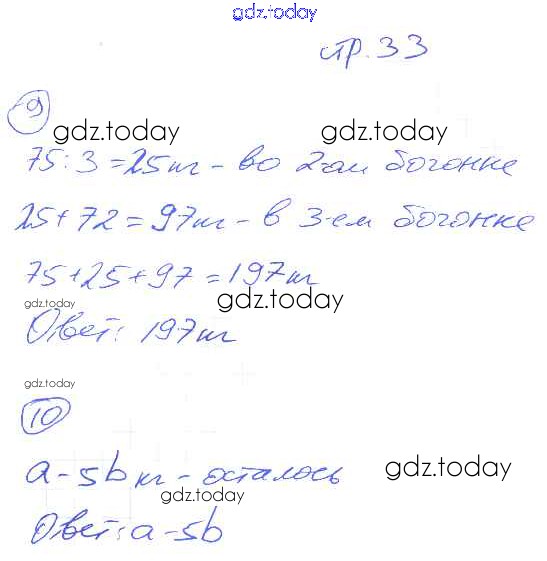 gdz.today
стр. 33
9
gdz.today gdz.today
75:3=25кг - во 2-ом богонке
25+72=97кг - в 3-ем богонке
75+25+97=197кг
gdz.today gdz.today
Ответ: 197кг
gdz.today
10
a-5b кг - осталось
gdz.today gdz.today
Ответ: a-5b